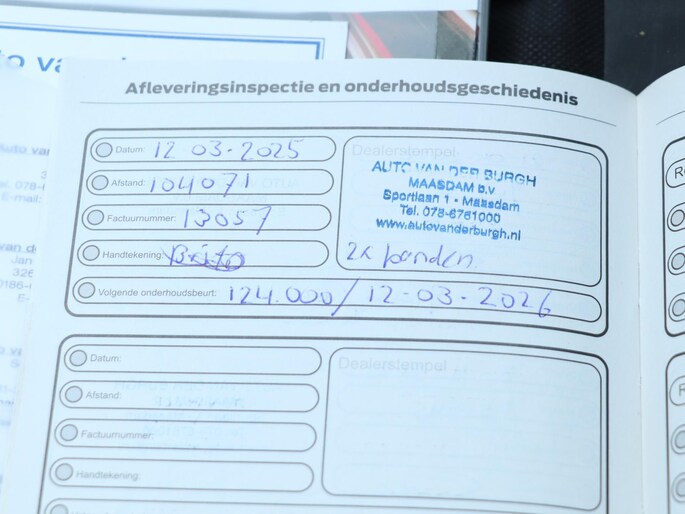 Afleveringsinspectie en onderhoudsgeschiedenis
Datum: 12 03-2025
Afstand: 104071
Factuurnummer: 13057
Handtekening:
Volgende onderhoudsbeurt: 124.000 / 12-03-2026
Dealerstempel
AUTO VAN DER BURGH
MAASDAM b.v
Sportlaan 1 - Maasdam
Tel. 078-6761000
www.autovanderburgh.nl
2x banden
Datum:
Afstand:
Factuurnummer:
Handtekening:
Dealerstempel